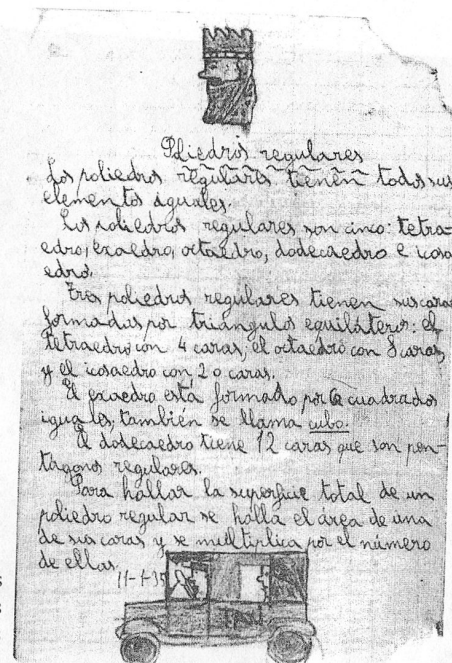 Poliedros regulares
Los poliedros regulares tienen todos sus
elementos iguales.
Los poliedros regulares son cinco: tetra-
edro, exaedro, octaedro, dodecaedro e icosa
edro.
Tres poliedros regulares tienen sus caras
formadas por triángulos equiláteros: el
tetraedro con 4 caras, el octaedro con 8 caras,
y el icosaedro con 20 caras.
El exaedro está formado por 6 cuadrados
iguales, también se llama cubo.
El dodecaedro tiene 12 caras que son pen-
tágonos regulares.
Para hallar la superficie total de un
poliedro regular se halla el área de una
de sus caras y se multiplica por el número
de ellas.